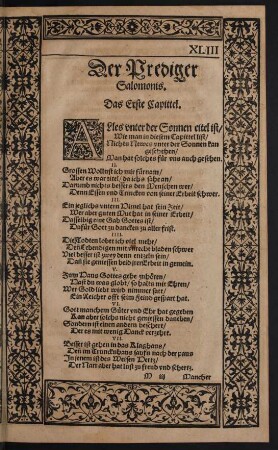 XLIII
Der Prediger
Salomonis.
Das Erste Capittel.
ALles vnter der Sonnen eitel ist/
Wie man in diesem Capittel list/
Nichts Newes vnter der Sonnen kan
geschehen/
Man hat solches für vns auch gesehen.
II.
Grossen Wollust ich mir fürnam/
Aber es war eitel/ da ichs sahe an/
Darumb nichts bessers den Menschen wer/
Denn Essen vnd Trincken von seiner Erbeit schwer.
III.
Ein jeglichs vnterm Himel hat sein Zeit/
Wer aber guten Mut hat in seiner Erbeit/
Dasselbig eine Gab Gottes ist/
Dafür Gott zu dancken zu aller frist.
IIII.
Die Todten lobet ich viel mehr/
Den Lebendigen mit bladen schwer
Viel besser ist zwey denn entzeln sein/
Daß sie geniessen beid jrer Erbeit in gemein.
V.
Zum Haus Gottes gehe zuhören/
Hast du was globt/ so halts mit Ehren/
Wer Gold liebt wird nimmer satt/
Ein Reicher offt seim Feind gespart hat.
VI.
Gott manchem Güter vnd Ehr hat gegeben
Kan aber solchs nicht geniessen daneben/
Sondern ist einen andern beschert/
Der es mit wenig Danck verzehrt.
VII.
Besser ist gehen in das Klaghaus/
Den im Trinckhaus saufn nach der paus
In jenem ist des Weisen Hertz/
Der Narr aber hat lust zu freud vnd schertz.
M iij
Mancher